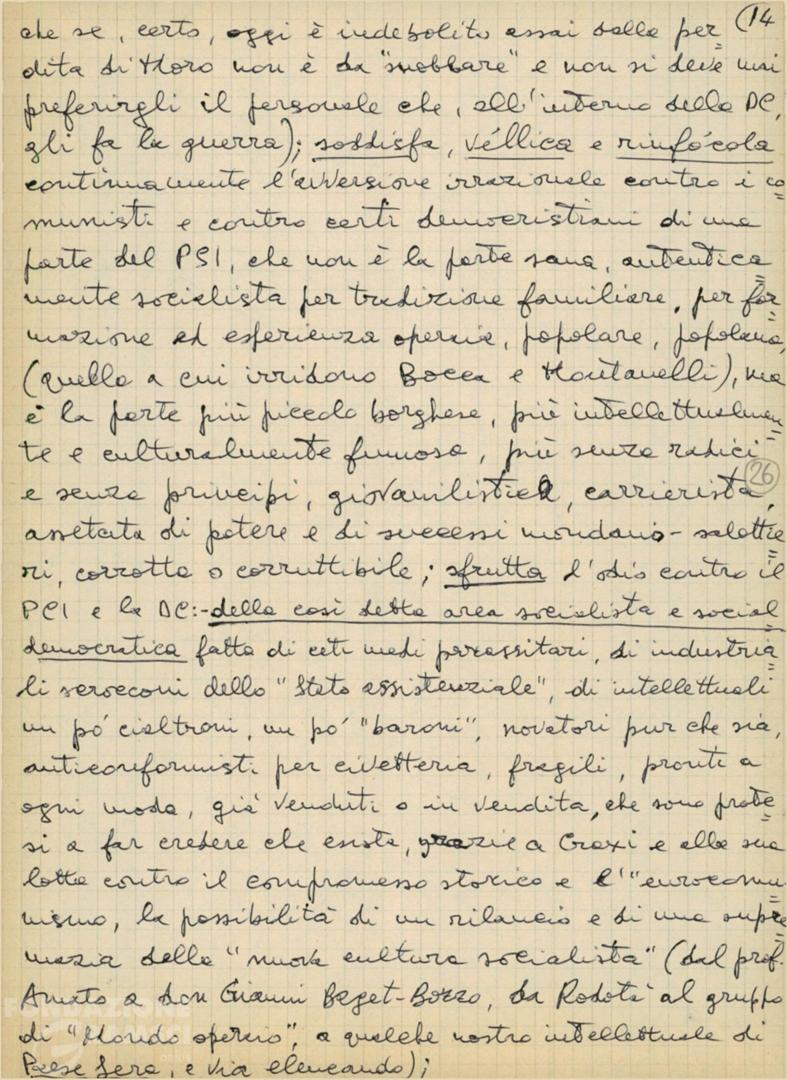 (14
che se, certo, oggi è indebolito assai dalla per=
dita di Moro non è da "snobbare" e non si deve mai
preferirgli il personale che, all'interno della DC,
gli fa la guerra); soddisfa, véllica e rinfócola
continuamente l'avversione irrazionale contro i co=
munisti e contro certi democristiani di una
parte del PSI, che non è la parte sana, autentica=
mente socialista per tradizione familiare, per for=
mazione ed esperienza operaia, popolare, popolana,
(quella a cui irridono Bocca e Montanelli), ma
è la parte più piccolo borghese, più intellettualmen=
te e culturalmente fumosa, più senza radici
26
e senza principi, giovanilistica, carrierista,
assetata di potere e di successi mondano-salottie=
ri, corrotta o corruttibile; sfrutta l'odio contro il
PCI e la DC:-della così detta area socialista e social
democratica fatta di ceti medi parassitari, di industria=
li semeconi dello "Stato assistenziale", di intellettuali
un pó cialtroni, un pó "baroni", novatori pur che sia,
anticonformisti per civetteria, fragili, pronti a
ogni moda, già venduti o in vendita, che sono prote=
si a far credere che esista, grazie a Craxi e alla sua
lotta contro il compromesso storico e l'"eurocomu=
nismo, la possibilità di un rilancio e di una supre=
mazia della "nuova cultura socialista" (dal prof.
Amato a don Gianni Baget-Bozzo, da Rodotà al gruppo
di "Mondo operaio", a qualche nostro intellettuale di
Paese Sera, e via elencando);
FONDAZIONE